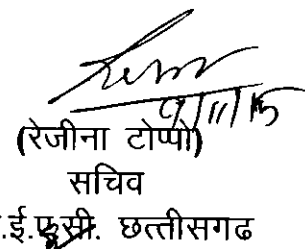 9/11/15
(रेजीना टोप्पो)
सचिव
.ई.एफ.सी. छत्तीसगढ